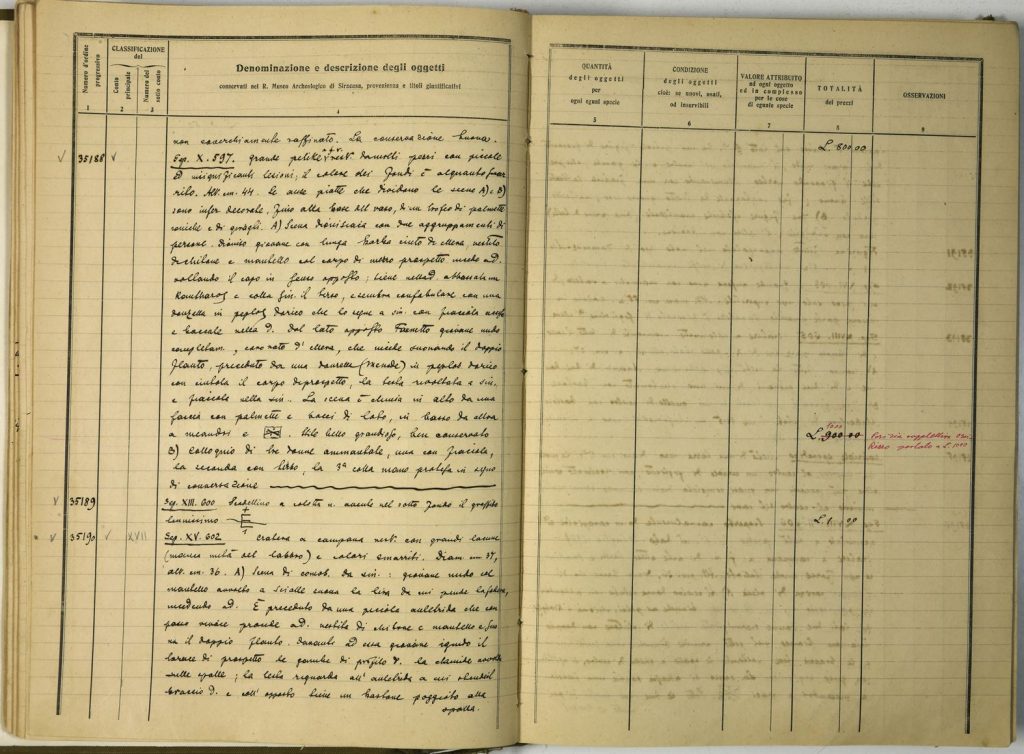 Numero d'ordine progressivo
CLASSIFICAZIONE del
Conto principale
Numero del sotto conto
Denominazione e descrizione degli oggetti
conservati nel R. Museo Archeologico di Siracusa, provenienza e titoli giustificativi
1 2 3 4
QUANTITÀ degli oggetti per ogni egual specie
CONDIZIONE degli oggetti cioè: se nuovi, usati, od inservibili
VALORE ATTRIBUITO ad ogni oggetto ed in complesso per le cose di eguale specie
TOTALITÀ dei prezzi
OSSERVAZIONI
5 6 7 8 9
non soverchiamente raffinato. La conservazione buona. L. 800 00
35188 Sep. X. 597. grande pelike rest. da molti pezzi con piccole
ed insignificanti lesioni; il colore dei fondi è alquanto
Alt. cm. 44. Le due piatte che dividono le scene A) e B)
sono decorate, fino alla base del vaso, di un trofeo di palmette
e di giragli. A) Scena dionisiaca con due aggruppamenti di
persone. Dioniso giovane con lunga barba cinto di edera, vestito
di chitone e mantello col corpo di prospetto ad.
voltando il capo in senso opposto; tiene nella d. abbassata un
Kantharos e colla sin. il tirso, e sembra confabulare con una
donzella in peplos dorico che lo segue a sin. con fiaccola
e nella d. Dal lato opposto giovane nudo
completam., coronato d'edera, che incede suonando il doppio
flauto, preceduto da una donzella (menade) in peplos dorico
con il corpo di prospetto, la testa rivoltata a sin.
e fiaccola nella sin. La scena è chiusa in alto da una
fascia con palmette e bocci di loto, in basso da altra
a meandri e . Stile bello grandioso, ben conservato L. 900 00
B) Colloquio di tre donne ammantate, una con fiaccola,
la seconda con tirso, la 3ª colla mano protesa in segno
di conversazione
35189 Sep. XIII. 600 Scodellino a nel sotto fondo il graffito
tenuissimo L. 1 00
35190 XVII Sep. XV. 602 Cratere a campana rest. con grandi lacune
(manca metà del labbro) e colori smarriti. Diam. cm. 37,
alt. cm. 36. A) Scena di da sin.: giovane nudo col
mantello avvolto a scialle suona la lira da cui pende la
incedendo ad. È preceduto da una piccola auletrida che con
passo procede ad. vestita di chitone e mantello e
na il doppio flauto. Davanti ad essa giovane ignudo il
torace di prospetto le gambe di profilo d. la clamide
sulle spalle; la testa riguarda all'auletrida a cui
braccio d. e coll'opposto tiene un bastone poggiato alla
spalla.